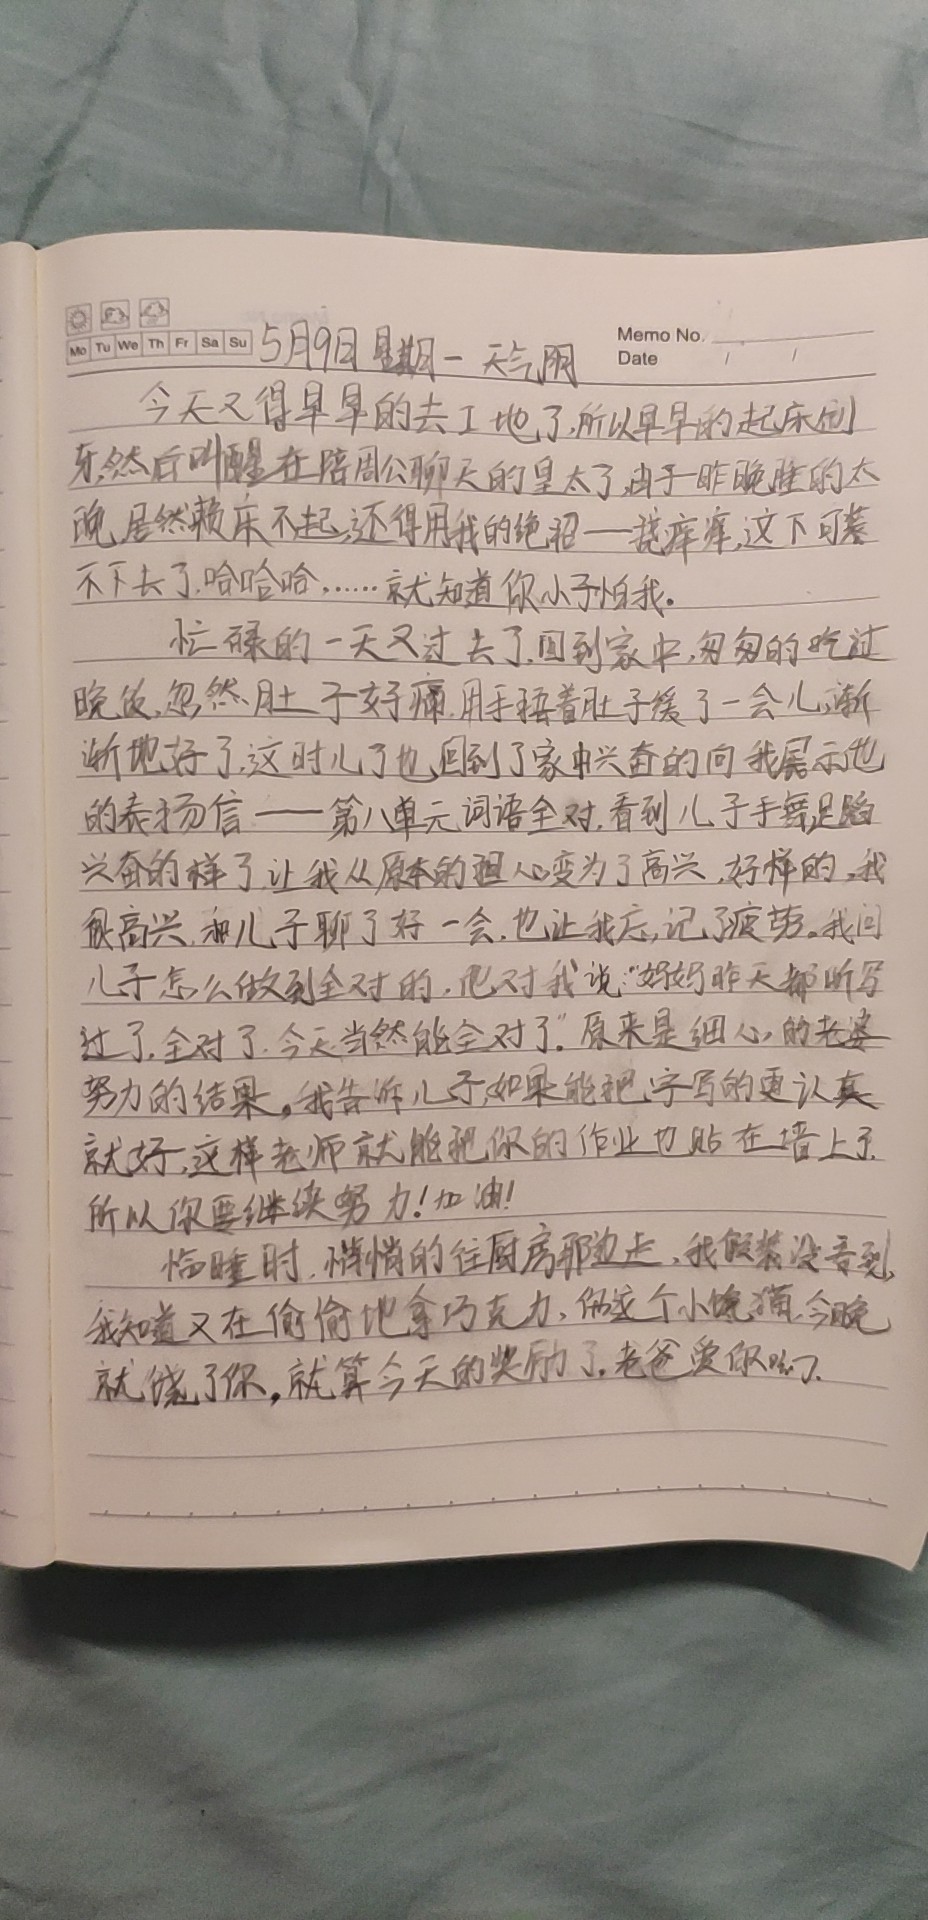 Mo Tu We Th Fr Sa Su
5月9日 星期一 天气阴
Memo No.
Date / /
今天又得早早的去工地了,所以早早的起床刷
牙,然后叫醒在陪周公聊天的皇太子,由于昨晚睡的太
晚,居然赖床不起,还得用我的绝招——挠痒痒,这下可装
不下去了,哈哈哈,……就知道你小子怕我。
忙碌的一天又过去了,回到家中,匆匆的吃过
晚饭,忽然肚子好痛,用手捂着肚子缓了一会儿,渐
渐地好了,这时儿子也回到了家中兴奋的向我展示他
的表扬信——第八单元词语全对,看到儿子手舞足蹈
兴奋的样子,让我从原本的担心变为了高兴,好样的,我
很高兴,和儿子聊了好一会,也让我忘记了疲劳。我问
儿子怎么做到全对的,他对我说:“妈妈昨天都听写
过了,全对了,今天当然能全对了”。原来是细心的老婆
努力的结果。我告诉儿子,如果能把字写的更认真
就好,这样老师就能把你的作业也贴在墙上了.
所以你要继续努力!加油!
临睡时,悄悄的往厨房那边走,我假装没看到,
我知道又在偷偷地拿巧克力,你这个小馋猫,今晚
就饶了你,就算今天的奖励了,老爸爱你哟.